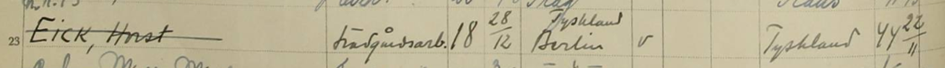 23 Eick, Horst trädgårdsarb. 18 28/12 Tyskland Berlin v Tyskland 44 22/11